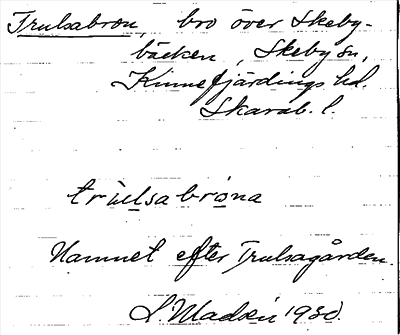 Trulsabron, bro över Skeby-
bäcken, Skeby sn,
Kinnefjärdings hd.
Skarab. l.
trulsabrona
Namnet efter Trulsagården.
1930.